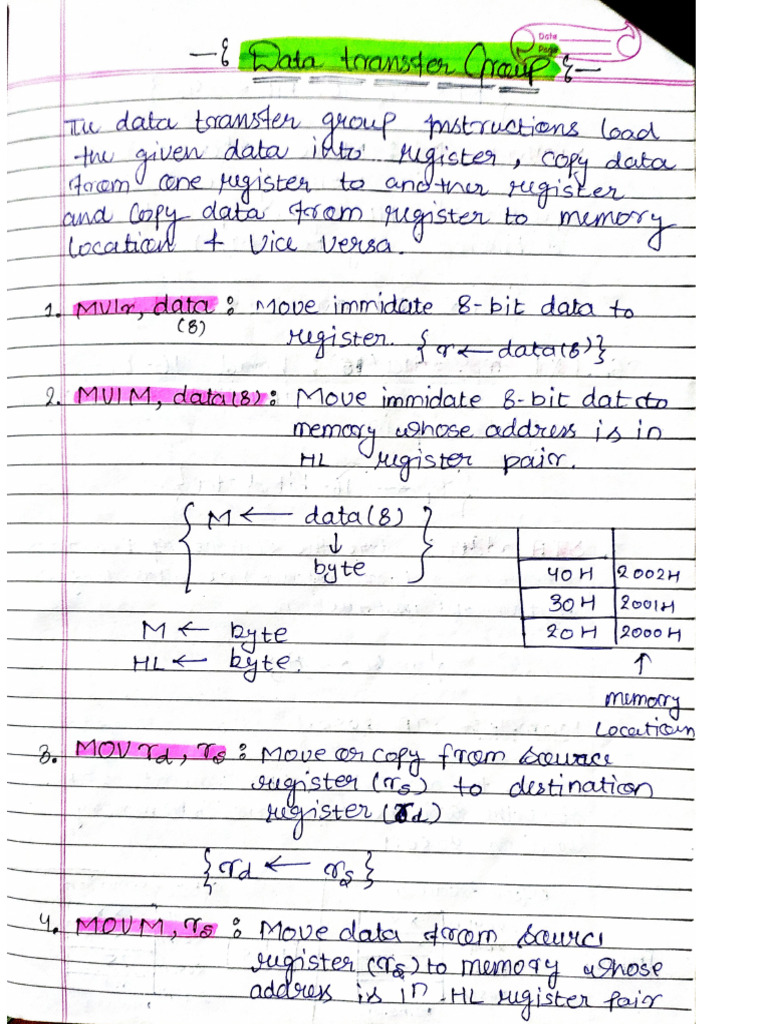 Date
Page
—{ Data transfer Group }—
The data transfer group instructions load
the given data into register, copy data
from one register to another register
and copy data from register to memory
location + vice versa.
1. MVI r, data : Move immidate 8-bit data to
(8)
register. { r ← data(8)}.
2. MVI M, data(8): Move immidate 8-bit dat to
memory whose address is in
HL register pair.
{ M ← data(8) }
↓
byte
40H 2002H
30H 2001H
20H 2000H
M ← byte
HL ← byte.
↑
memory
location
3. MOV rd, rs : Move or copy from source
register (rs) to destination
register (rd)
{rd ← rs}
4. MOV M, rs : Move data from sourc
register (rs) to memory whose
address is in HL register pair